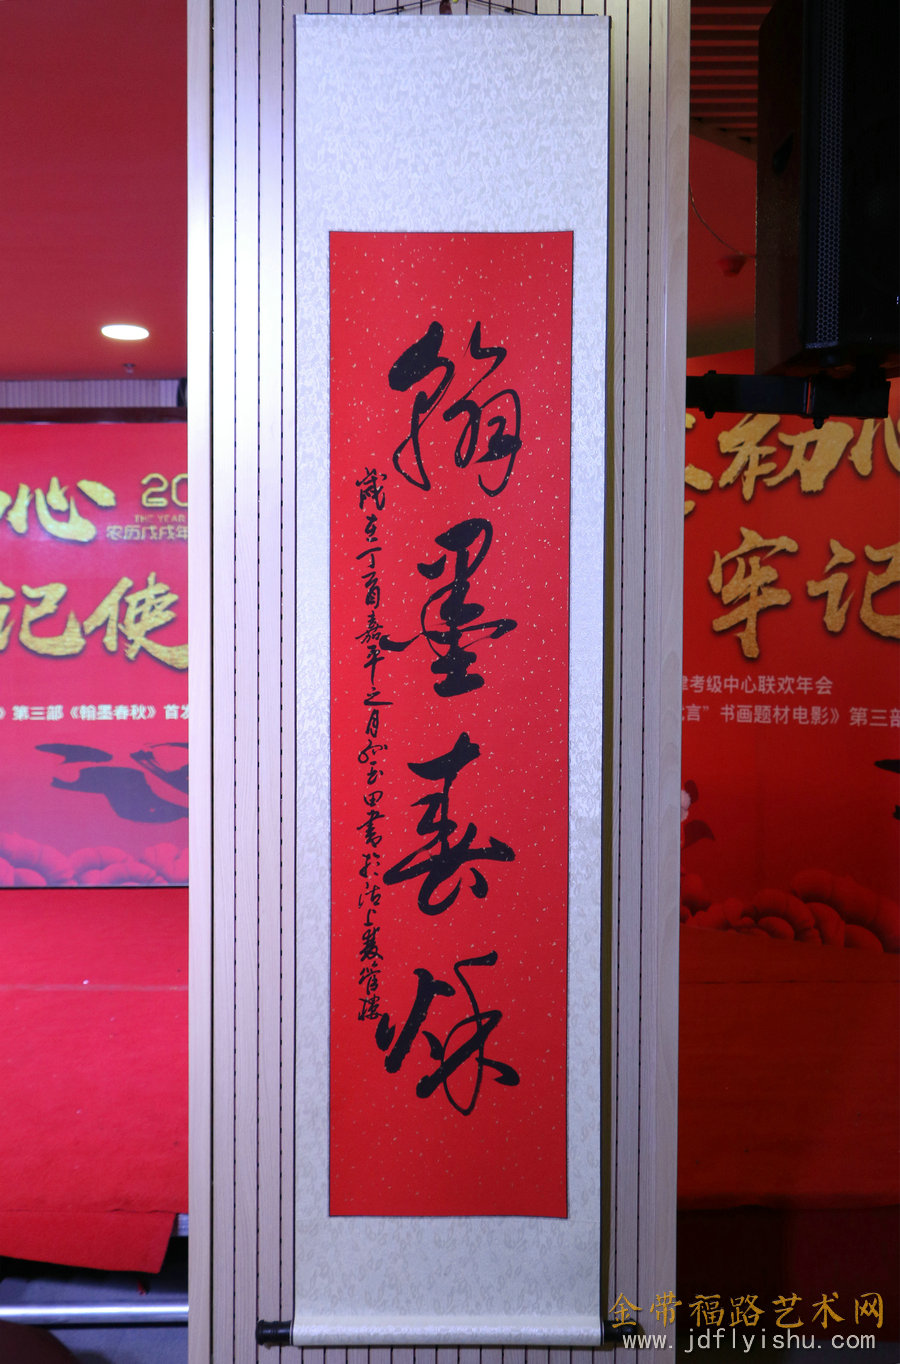 翰墨春秋
歲在丁酉嘉平之月
玉田書於沽上
初心
记使
20
THE YEAR
农历戊戌年
》第三部《翰墨春秋》首发
初心
牢记
考级中心联欢年会
言”书画题材电影》第三部
金带福路艺术网
www.jdflyishu.com